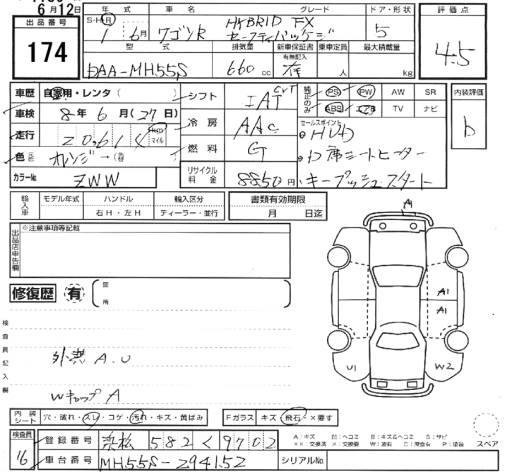 6月12日
出品番号
174
年式 車名 グレード ドア・形状 評価点
S・H・R
1年 6月 ワゴンR HYBRID FX セーフティパッケージ 5 4.5
型式 排気量 新車保証書 乗車定員 最大積載量
有無記入
5AA-MH55S 660cc 有 人 kg
車歴 自家用・レンタ( )
車検 8年 6月(27日)
走行 20,611 km マイル
色 オレンジ
カラーNo ZWW
シフト IAT CVT
冷房 AAC
燃料 G
リサイクル料金 8850円
純正のみ PS PW AW SR
ABS エアB TV ナビ
セールスポイント
HUD
D席シートヒーター
キープッシュスタート
内装評価
b
輸入車 モデル年式 ハンドル 輸入区分 書類有効期限
右H・左H ディーラー・並行 月 日迄
出品店申告欄
※注意事項等記載
修復歴 有 箇所
検査員記入欄
外装A.U
WキャップA
A1
A1
A1
U1
W2
内装シート 穴・破れ・スレ・コゲ・汚れ・キズ・黄ばみ
Fガラス キズ・飛石・×要す
検査員
16
登録番号 浜松 582 く 9702
車台番号 MH55S-294152
シリアルNo
A:キズ U:ヘコミ B:キズ&ヘコミ S:サビ
××:交換済 X:交換要 W:波 C:腐食有 P:塗装
スペア